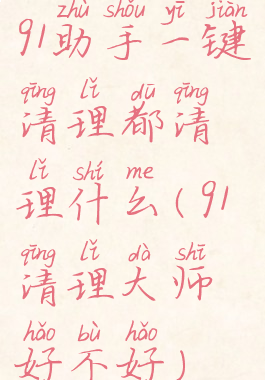 zhù shǒu yī jiàn
91助手一键
qīng lǐ dū qīng
清理都清
lǐ shí me
理什么(91
qīng lǐ dà shī
清理大师
hǎo bù hǎo
好不好)